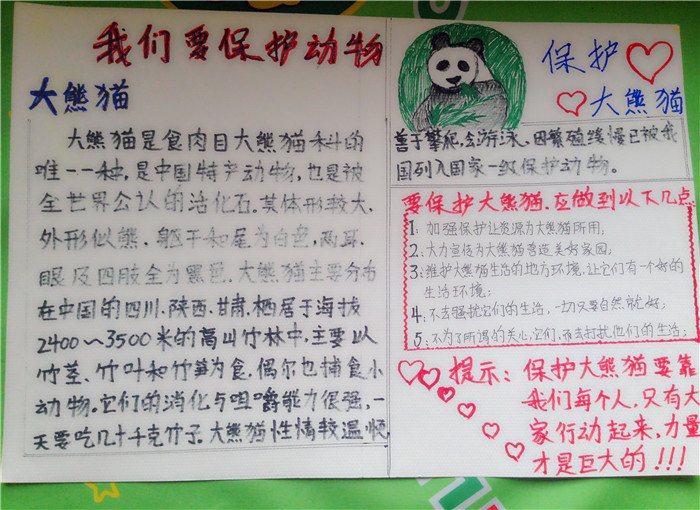 我们要保护动物
大熊猫
大熊猫是食肉目大熊猫科的
唯一一种,是中国特产动物,也是被
全世界公认的活化石。其体形较大,
外形似熊、躯干和尾为白色,两耳、
眼及四肢全为黑色。大熊猫主要分布
在中国的四川、陕西、甘肃。栖居于海拔
2400~3500米的高山竹林中,主要以
竹茎、竹叶和竹笋为食,偶尔也捕食小
动物。它们的消化与咀嚼能力很强,一
天要吃几十千克竹子。大熊猫性情较温顺
保护
大熊猫
善于攀爬,会游泳。因繁殖缓慢已被我
国列入国家一级保护动物。
要保护大熊猫,应做到以下几点:
1:加强保护让资源为大熊猫所用;
2:大力宣传为大熊猫营造美好家园;
3:维护大熊猫生活的地方环境,让它们有一个好的
生活环境;
4:不去骚扰它们的生活,一切只要自然就好;
5:不为了所谓的关心它们,而去打扰他们的生活;
提示:保护大熊猫要靠
我们每个人,只有大
家行动起来,力量
才是巨大的!!!